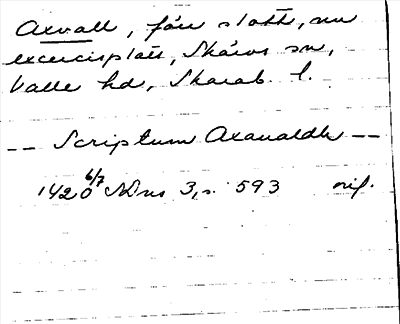 Axvall, förr slott, nu
exercisplats, Skärvs sn,
Valle hd, Skarab. l.
-- Scriptum Axaualdh --
1420 6/7 SDns 3, s. 593 orig.